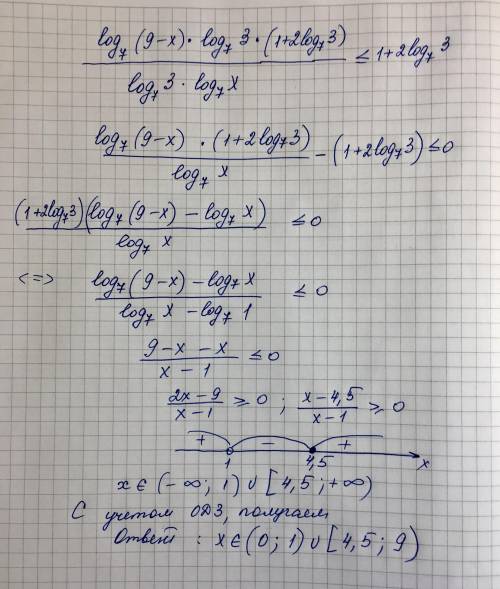 log₇(9-x)·log₇3·(1+2log₇3) / log₇3·log₇x ≤ 1+2log₇3
log₇(9-x)·(1+2log₇3) / log₇x - (1+2log₇3) ≤ 0
(1+2log₇3)(log₇(9-x) - log₇x) / log₇x ≤ 0
<=> log₇(9-x) - log₇x / log₇x - log₇1 ≤ 0
9-x-x / x-1 ≤ 0
2x-9 / x-1 ≥ 0 ; x-4,5 / x-1 ≥ 0
+ - +
1 4,5 x
x ∈ (-∞; 1) ∪ [4,5; +∞)
С учетом ОДЗ, получаем
Ответ : x ∈ (0; 1) ∪ [4,5; 9)